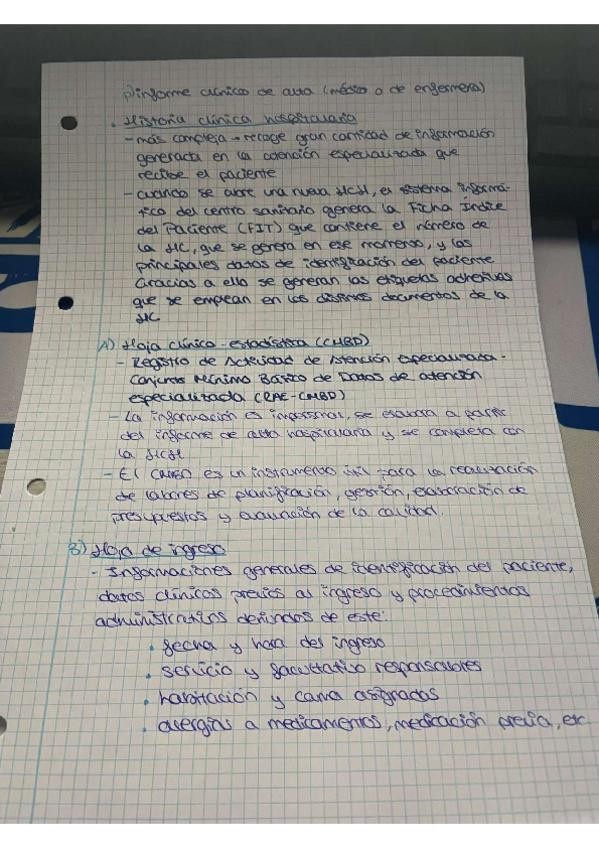 p) informe clínico de alta (médico o de enfermera)
• Historia clínica hospitalaria
- más compleja → recoge gran cantidad de información
generada en la atención especializada que
recibe el paciente
- cuando se abre una nueva HCH, el sistema informá-
tico del centro sanitario genera la Ficha Índice
del Paciente (FIT) que contiene el número de
la HC, que se genera en ese momento, y los
principales datos de identificación del paciente
Gracias a ello se generan las etiquetas adhesivas
que se emplean en los distintos documentos de la
HC
A) Hoja clínico-estadística (CMBD)
- Registro de Actividad de Atención Especializada -
Conjunto Mínimo Básico de Datos de atención
especializada (RAE-CMBD)
- La información es impersonal, se elabora a partir
del informe de alta hospitalaria y se completa con
la HCH
- El CMBD es un instrumento útil para la realización
de labores de planificación, gestión, elaboración de
presupuestos y evaluación de la calidad.
B) Hoja de ingreso
- Informaciones generales de identificación del paciente,
datos clínicos previos al ingreso y procedimientos
administrativos derivados de este:
• fecha y hora del ingreso
• servicio y facultativo responsables
• habitación y cama asignados
• alergias a medicamentos, medicación previa, etc